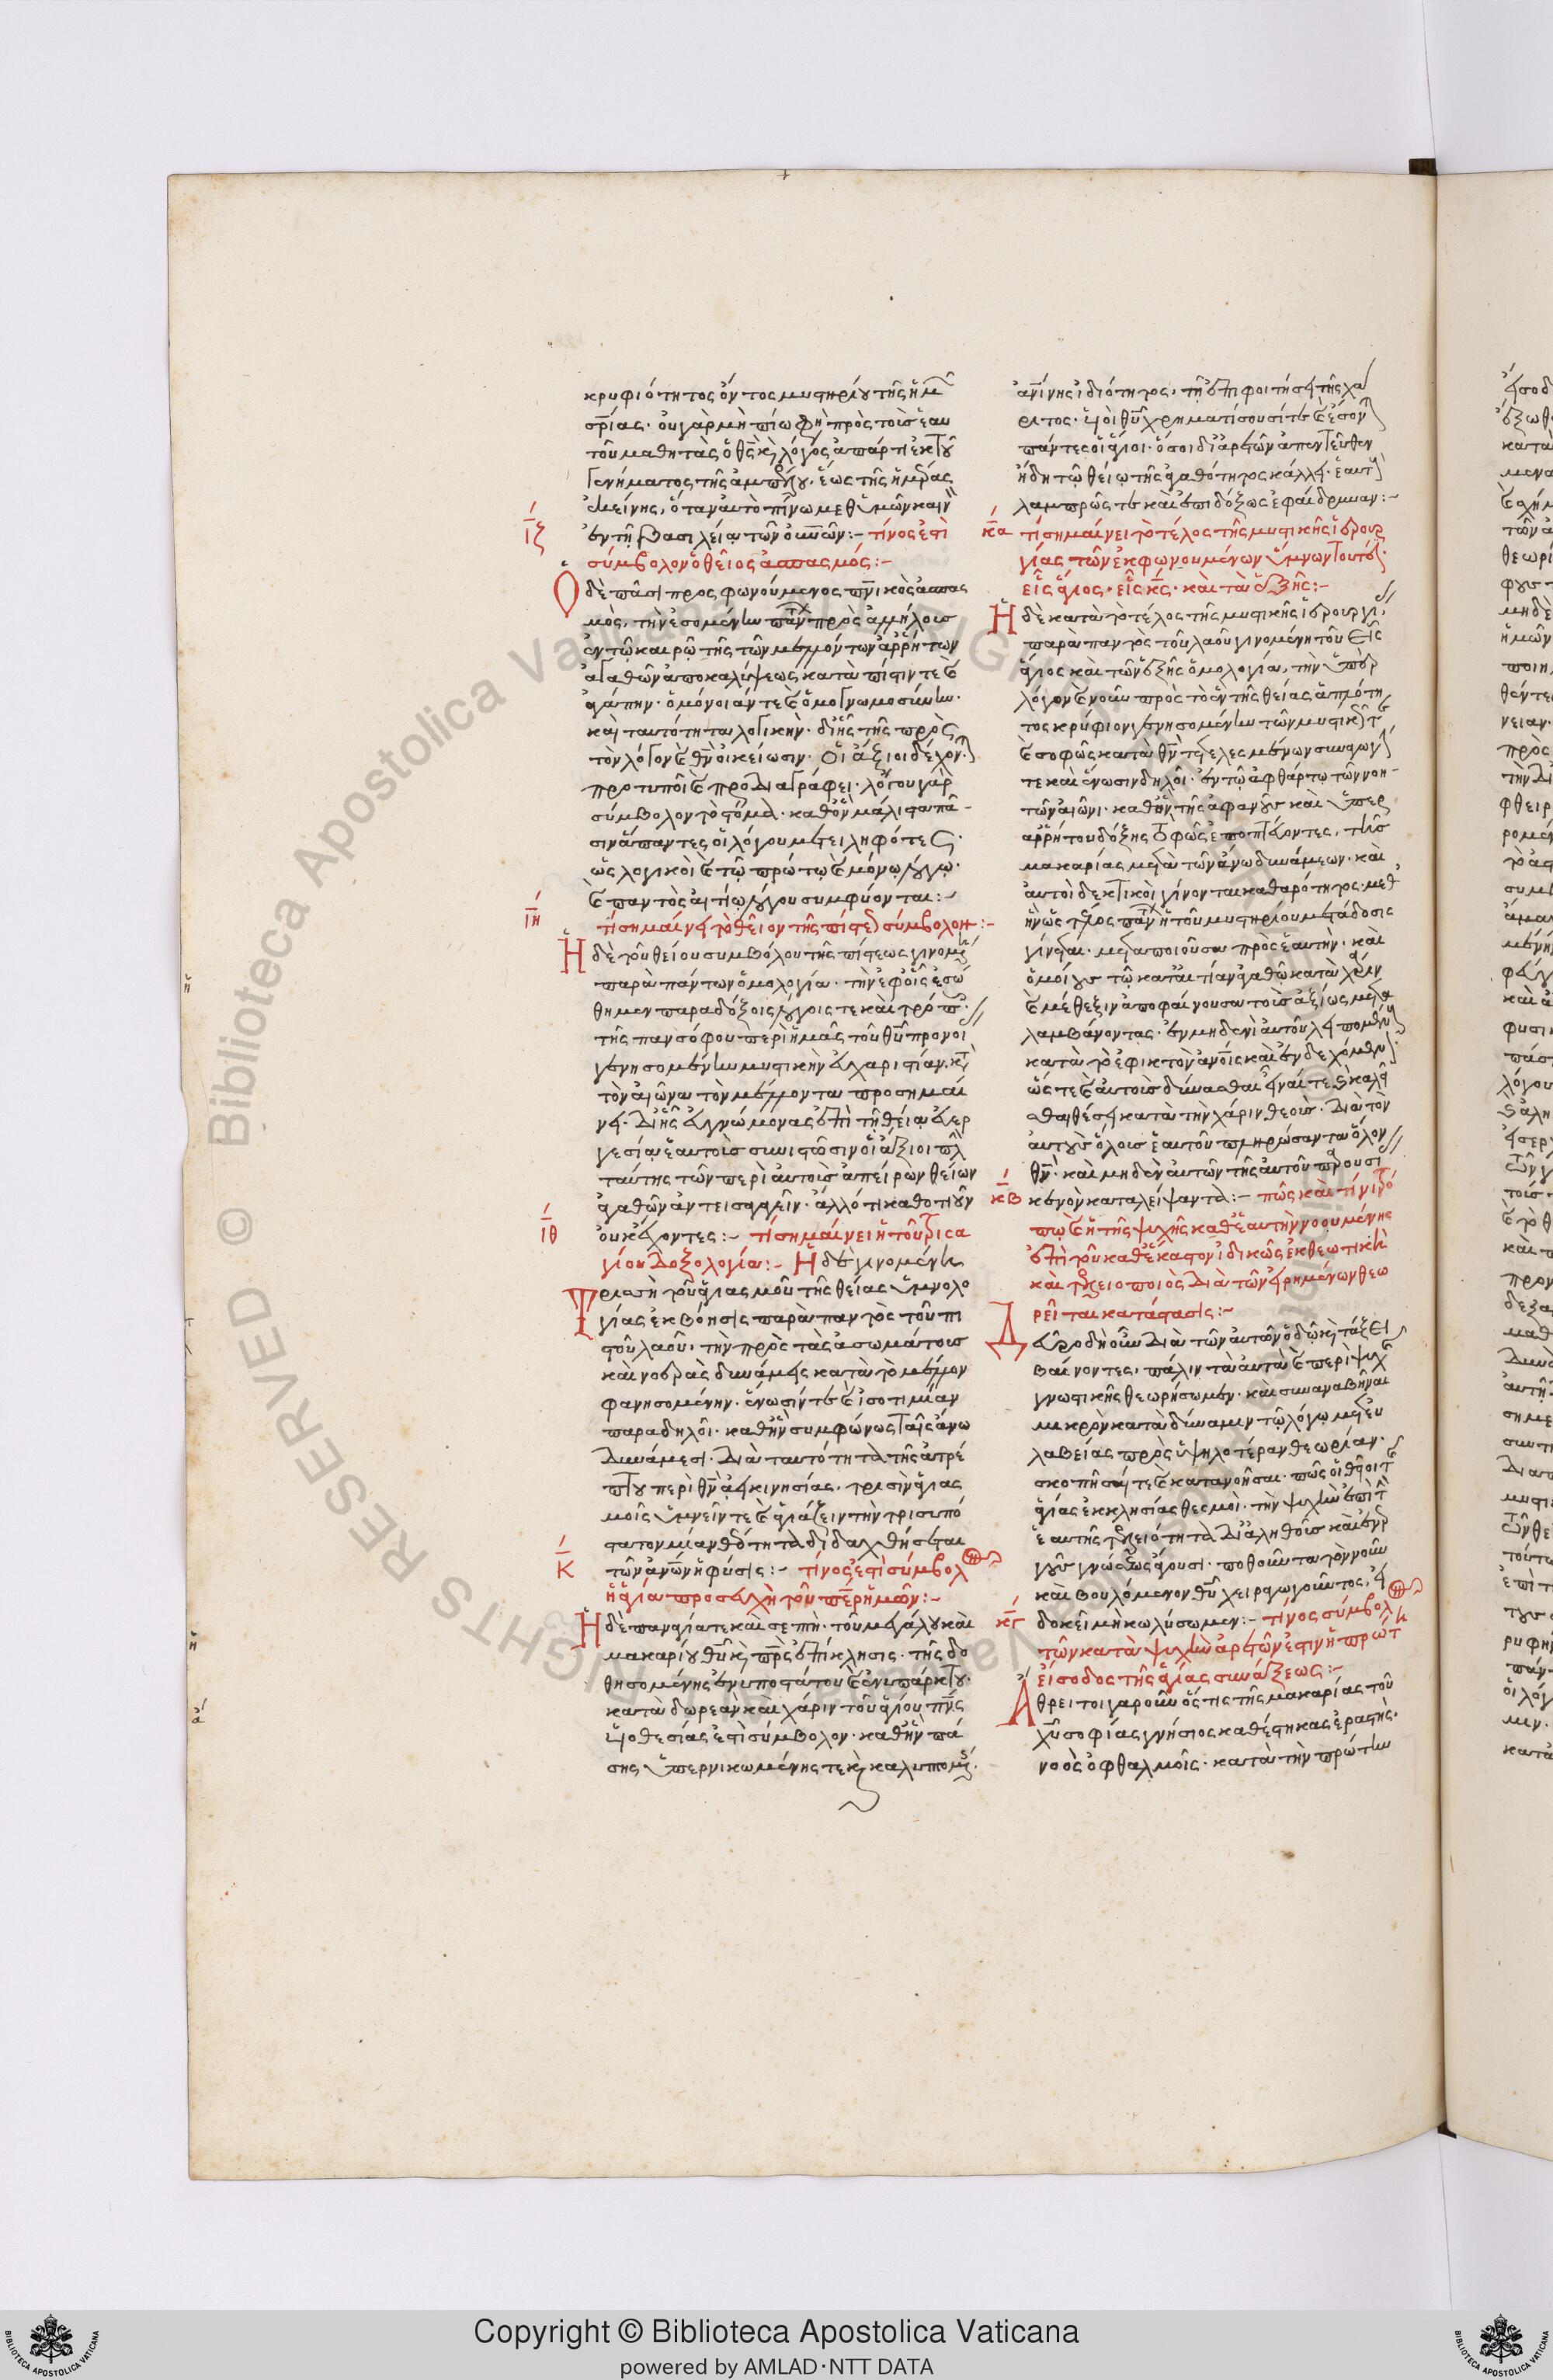 κρυφιότητος ὄντος μυστηρίου τῆς ἡμ
σρίας· οὐ γὰρ μὴ πίω φη πρὸς τοὺς ἑαυ
τοῦ μαθητὰς ὁ θς κὶ λόγος ἀπάρτι ἐκ τοῦ
γενήματος τῆς ἀμπέλου, ἕως τῆς ἡμέρας
ἐκείνης, ὅταν αὐτὸ πίνω μεθ ὑμῶν καινὸ
ἐν τῇ βασιλείᾳ τῶν οὐνῶν :- τίνος ἐστὶ
ιζ
σύμβολον ὁ θεῖος ἀσπασμός :-
Ὁ δὲ πᾶσι προσφωνούμενος πνικὸς ἀσπασ
μὸς, τὴν ἐσομένην πάντων πρὸς ἀλλήλους
ἐν τῷ καιρῷ τῆς τῶν μελλόντων ἀρρήτων
ἀγαθῶν ἀποκαλύψεως κατὰ πίστιν τε καὶ
ἀγάπην· ὁμόνοιάν τε καὶ ὁμογνωμοσύνην·
καὶ ταυτότητα λογικὴν· δι ἧς τῆς πρὸς
τὸν λόγον καὶ θν οἰκείωσιν· οἱ ἄξιοι δέχον
προτυποῖ καὶ προδιαγράφει· λόγου γὰρ
σύμβολον τὸ στόμα· καθ ὃν μάλιστα πᾶ-
σιν ἅπαντες οἱ λόγου μετειληφότες·
ὡς λογικοὶ καὶ τῷ πρώτῳ καὶ μόνῳ λόγῳ·
καὶ παντὸς αἰτίῳ λόγου συμφύονται :-
ιη
τί σημαίνει τὸ θεῖον τῆς πίστεως σύμβολον :-
Ἡ δὲ τοῦ θείου συμβόλου τῆς πίστεως γινομέ
παρὰ πάντων ὁμολογία· τὴν ἐφ οἷς ἐσώ
θημεν παραδόξοις λόγοις τε καὶ τρόποις
τῆς πανσόφου περὶ ἡμᾶς τοῦ θῦ προνοί
γενησομένην μυστικὴν εὐχαριστίαν, κὶ
τὸν αἰῶνα τὸν μέλλοντα προσημαί
νει· δι ἧς εὐγνώμονας ἐπὶ τῇ θείᾳ εὐερ
γεσίᾳ ἑαυτοὺς συνιστῶσιν οἱ ἄξιοι πλὴν
ταύτης τῶν περὶ αὐτοὺς ἀπείρων θείων
ἀγαθῶν ἀντεισαγαγεῖν· ἄλλό τι καθοτιοῦν
ιθ
οὐκ ἔχοντες :- τί σημαίνει ἡ τοῦ τρισα
γίου δοξολογία :- Ἡ δὲ γινομένη
Τρισσὴ τοῦ ἁγιασμοῦ τῆς θείας ὑμνολο
γίας ἐκβόησις παρὰ παντὸς τοῦ πι
στοῦ λαοῦ· τὴν πρὸς τὰς ἀσωμάτους
καὶ νοερὰς δυνάμεις κατὰ τὸ μέλλον
φανησομένην· ἕνωσίν τε καὶ ἰσοτιμίαν
παραδηλοῖ· καθ ἣν συμφώνως ταῖς ἄνω
δυνάμεσι· διὰ ταυτότητα τῆς ἀτρέ
πτου περὶ θν ἀεικινησίας, τρισὶν ἁγιασ
μοῖς ὑμνεῖν τε καὶ ἁγιάζειν τὴν τρισυπό
στατον μίαν θεότητα διδαχθήσεται
κ
τῶν ἀνων ἡ φύσις :- τίνος ἐστὶ σύμβολ
ἡ ἁγία προσευχὴ τοῦ περ ἡμῶν :-
Ἡ δὲ παναγία τε καὶ σεπτὴ· τοῦ μεγάλου καὶ
μακαρίου θῦ κὶ πρς ἐπίκλησις· τῆς δο
θησομένης ἐνυποστάτου καὶ ἐνυπάρκτου·
κατὰ δωρεὰν καὶ χάριν τοῦ ἁγίου πνς
υἱοθεσίας ἐστὶ σύμβολον· καθ ἣν πά
σης ὑπερνικωμένης τε κὶ καλυπτομέ
ἀνίνης ἰδιότητος, τῇ ἐπιφοιτήσει τῆς χά
ριτος· υἱοὶ θῦ χρηματίσουσί τε καὶ ἔσον
πάντες οἱ ἅγιοι· ὅσοι δι ἀρετῶν ἀπεντεῦθεν
ἤδη τῷ θείῳ τῆς ἀγαθότητος κάλλει· ἑαυτ
λαμπρῶς τε καὶ ἐπιδόξως ἐφαίδρυναν :-
κα
τί σημαίνει τὸ τέλος τῆς μυστικῆς ἱερουρ
γίας τῶν ἐκφωνουμένων ὕμνων τουτέ
εἷς ἅγιος· εἷς κς· καὶ τὰ ἑξῆς :-
Ἡ δὲ κατὰ τὸ τέλος τῆς μυστικῆς ἱερουργί
παρὰ παντὸς τοῦ λαοῦ γινομένη τοῦ εἷς
ἅγιος καὶ τῶν ἑξῆς ὁμολογία, τὴν ὑπὲρ
λόγον καὶ νοῦν πρὸς τὸ ἓν τῆς θείας ἁπλότη
τος κρύφιον γενησομένην τῶν μυστικῶς τε
καὶ σοφῶς κατὰ θν τετελεσμένων συναγωγ
τε καὶ ἕνωσιν δηλοῖ· ἐν τῷ ἀφθάρτῳ τῶν νοη-
τῶν αἰῶνι· καθ ὃν τῆς ἀφανοῦς καὶ ὑπερ
αρρήτου δόξης τὸ φῶς ἐποπτεύοντες, τῆς
μακαρίας μετὰ τῶν ἄνω δυνάμεων· καὶ
αὐτοὶ δεκτικοὶ γίνονται καθαρότητος· μεθ
ἣν ὡς τέλος πάντων ἡ τοῦ μυστηρίου μετάδοσις
γίνεται· μεταποιοῦσα πρὸς ἑαυτὴν· καὶ
ὁμοίους τῷ κατ αἰτίαν ἀγαθῷ κατὰ χάριν
καὶ μέθεξιν ἀποφαίνουσα τοὺς ἀξίως μετα
λαμβάνοντας· ἐν μηδενὶ αὐτοῦ λειπομένους
κατὰ τὸ ἐφικτὸν ἀνοις καὶ ἐνδεχόμενον
ὥστε καὶ αὐτοὺς δύνασθαι εἶναί τε καὶ καλεῖ
σθαι θέσει κατὰ τὴν χάριν θεοὺς· διὰ τὸν
αὐτοὺς ὅλους ἑαυτοῦ πληρώσαντα ὅλον
θν· καὶ μηδὲν αὐτῶν τῆς αὐτοῦ παρουσί
κβ
κενὸν καταλείψαντα :- πῶς καὶ τίνι τρό
πῳ καὶ ἡ τῆς ψυχῆς καθ ἑαυτὴν νοουμένης
ἐπὶ τοῦ καθ ἕκαστον ἰδικῶς ἐκθεωτικὴ
καὶ τελειοποιὸς διὰ τῶν εἰρημένων θεω
ρεῖται κατάστασις :-
Δεῦρο δὴ οὖν διὰ τῶν αὐτῶν ὁδῷ κὶ τάξει
βαίνοντες, πάλιν τὰ αὐτὰ καὶ περὶ ψυχῆς
γνωστικῆς θεωρήσωμεν· καὶ συναναβῆναι
μικρὸν κατὰ δύναμιν τῷ λόγῳ μετ εὐ
λαβείας πρὸς ὑψηλοτέραν θεωρίαν·
σκοπῆσαί τε καὶ κατανοῆσαι· πῶς οἱ θεῖοι τῆς
ἁγίας ἐκκλησίας θεσμοὶ· τὴν ψυχὴν ἐπὶ τὴν
ἑαυτῆς τελειότητα δι ἀληθοῦς καὶ ἐνερ
γοῦς γνώσεως ἄγουσι· ποθοῦντα τὸν νοῦν
καὶ βουλόμενον θῦ χειραγωγοῦντος, εἰ
κγ
δοκεῖ μὴ κωλύσωμεν :- τίνος σύμβολ
τῶν κατὰ ψυχὴν ἀρετῶν ἐστιν ἡ πρώτη
εἴσοδος τῆς ἁγίας συνάξεως :-
Ἄθρει τοιγαροῦν ὅστις τῆς μακαρίας τοῦ
χῦ σοφίας γνήσιος καθέστηκας ἐραστὴς·
νοὸς ὀφθαλμοῖς· κατὰ τὴν πρώτην
Copyright © Biblioteca Apostolica Vaticana
powered by AMLAD·NTT DATA